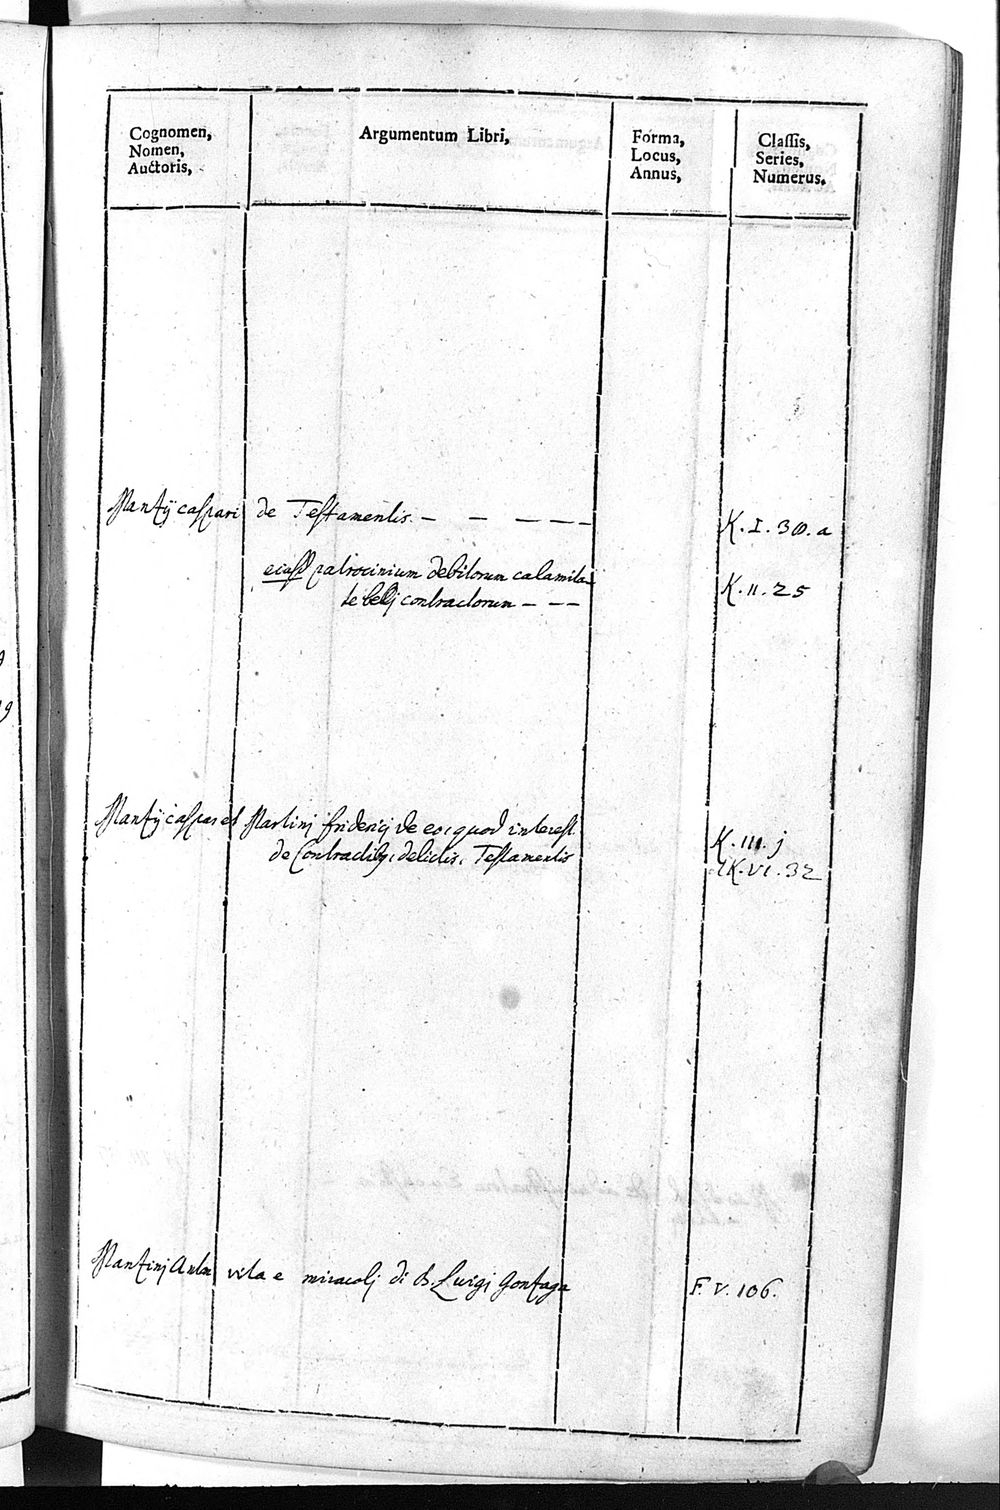 Cognomen,
Nomen,
Auctoris,
Argumentum Libri,
Forma,
Locus,
Annus,
Classis,
Series,
Numerus.
Manzij caspari de Testamentis. – – – – – K. I. 30. a
eiusd patrocinium debitorum calamita- K. II. 25
te belli contractorum – – –
Manzij caspar et Martinj friderici de eo quod interest K. III. j
de Contractib9, delictis, Testamentis K. VI. 32
Manzinj Anton vita e miracolj di B. Luigj Gonzaga F. V. 106.